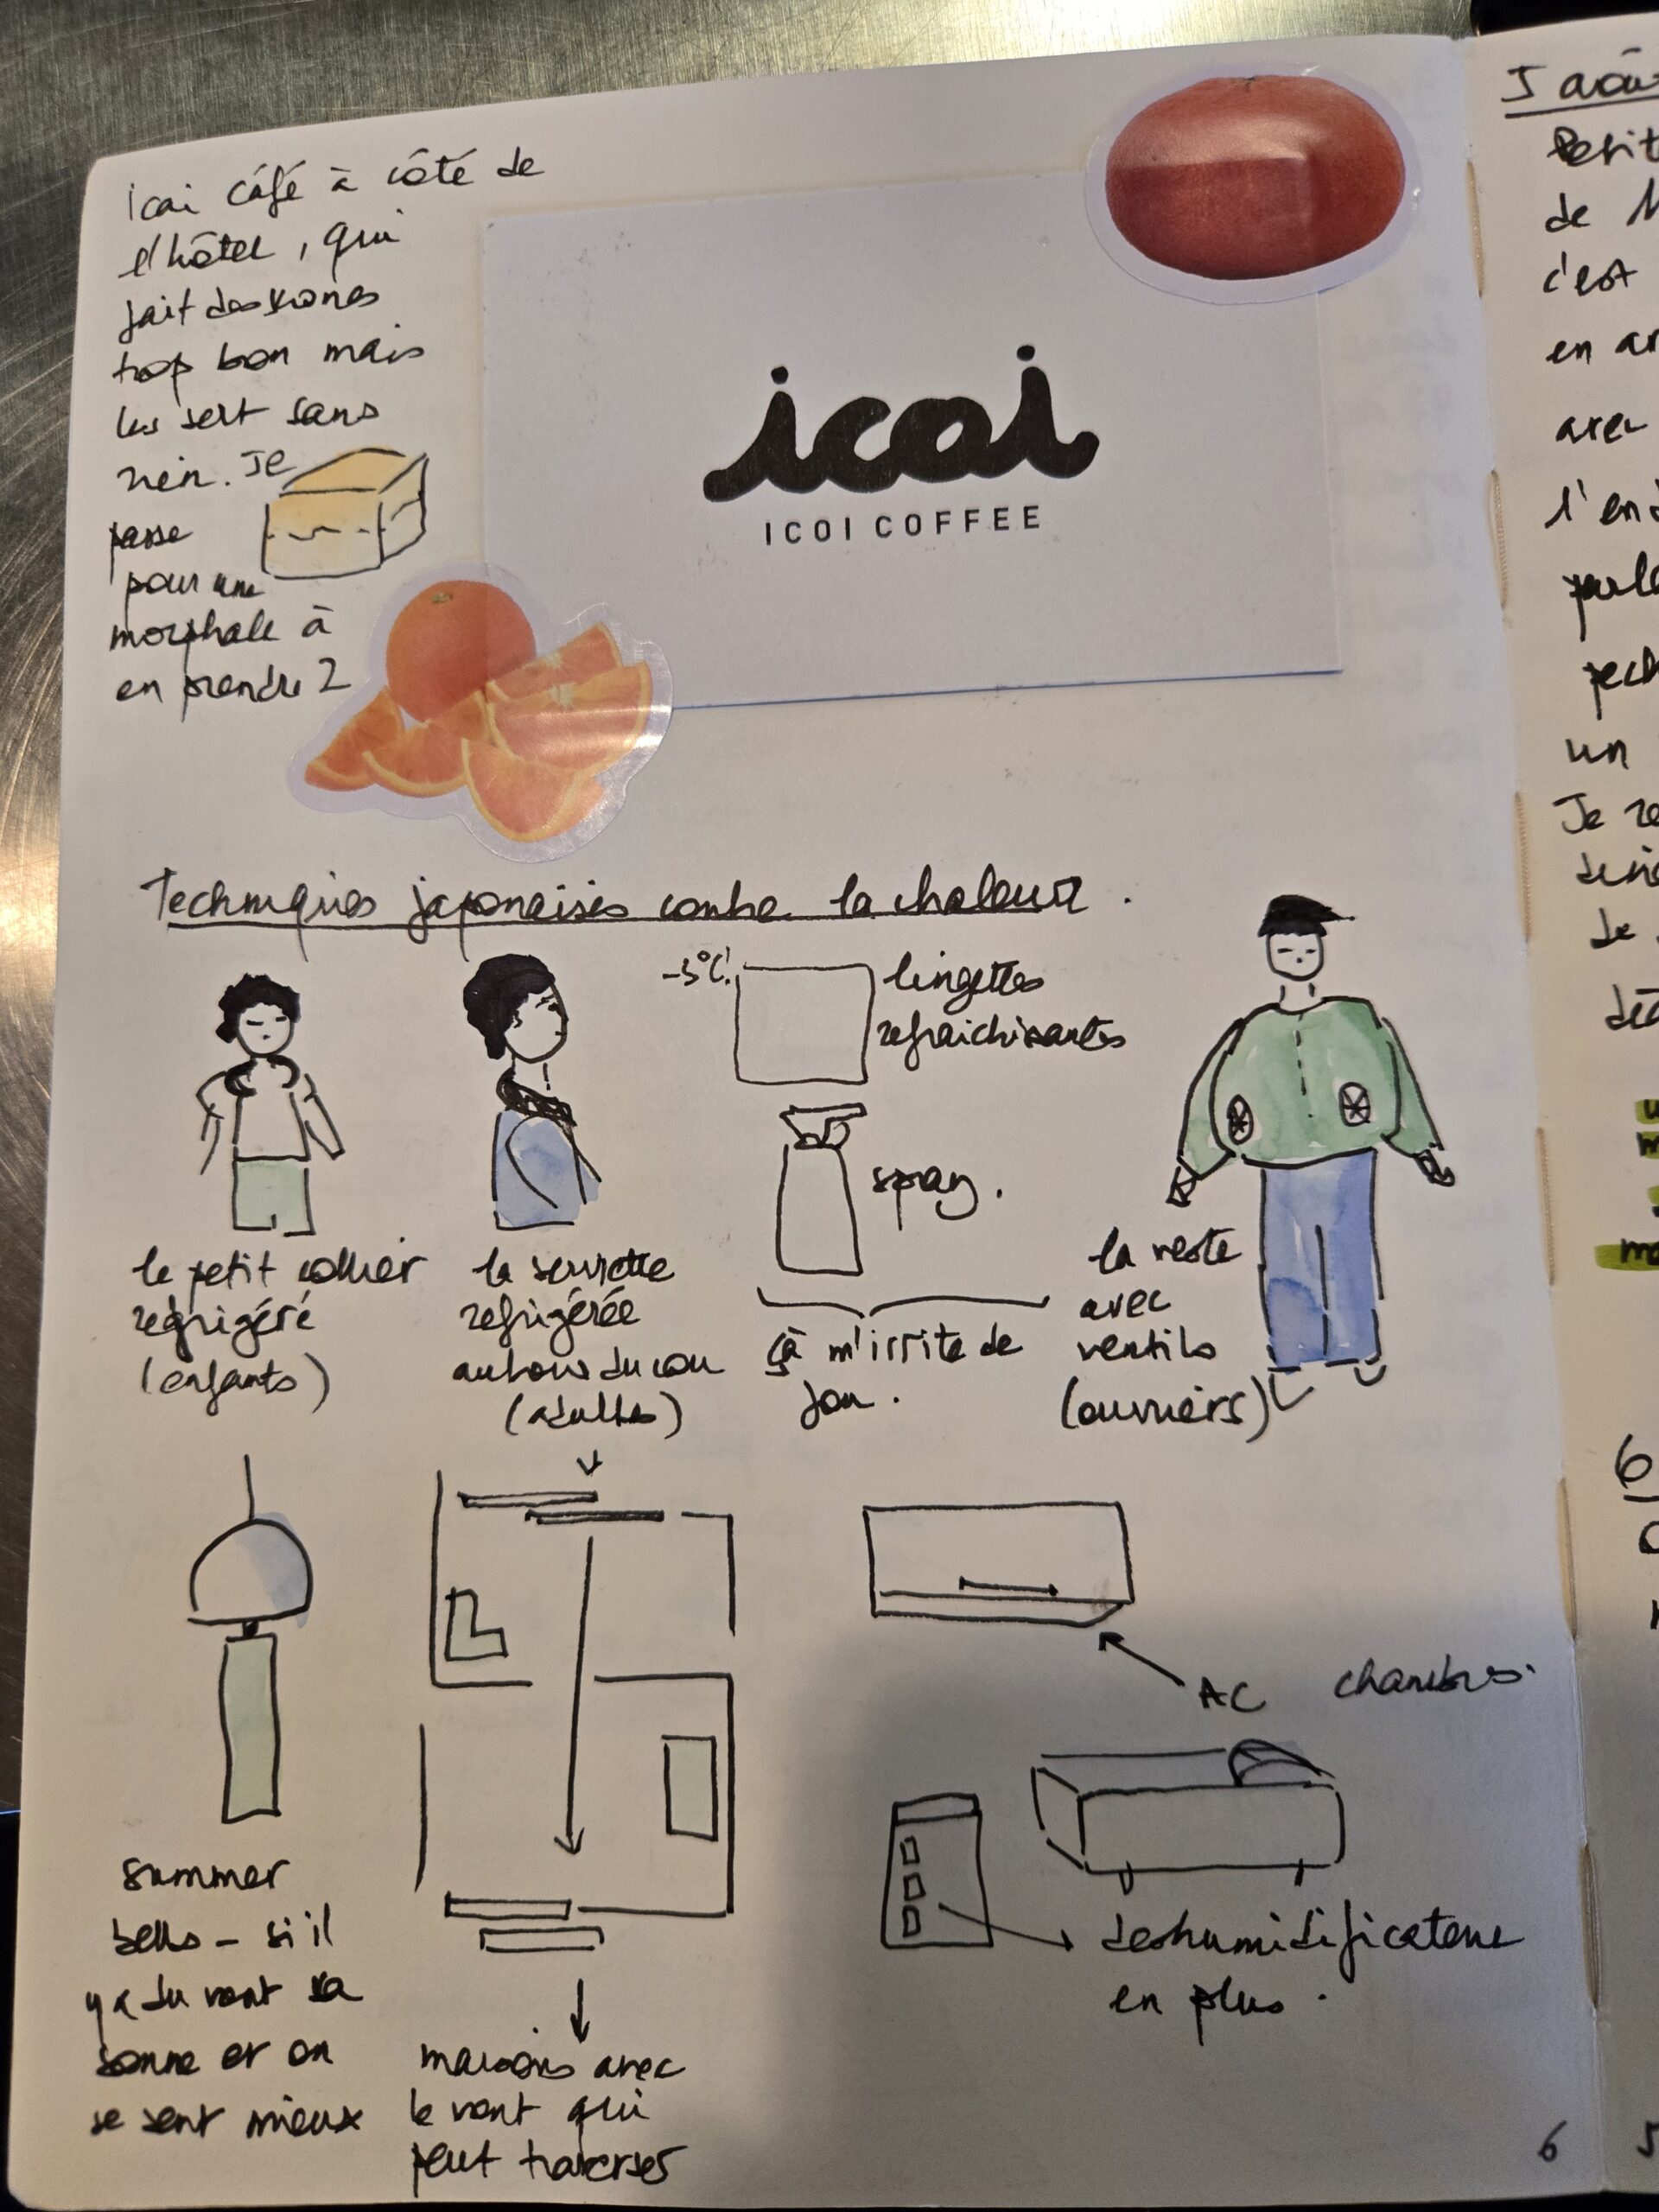 icoi café à côté de
l'hôtel, qui
fait des scones
trop bon mais
les sert sans
rien. Je
passe
pour une
morphale à
en prendre 2
icoi
ICOI COFFEE
Techniques japonaises contre la chaleur.
le petit collier
réfrigéré
(enfants)
la serviette
refrigérée
autour du cou
(adultes)
lingettes
rafraichissantes
spray.
ça m'irrite de
fou.
la veste
avec
ventilo
(ouvriers)
summer
bells - si il
y a du vent ça
sonne et on
se sent mieux
maisons avec
le vent qui
peut traverser
AC chambres.
deshumidificateur
en plus.
6
5 aoû
Petit
de
c'est
en
avec
l'en
parl
pech
un
Je re
de
6
5